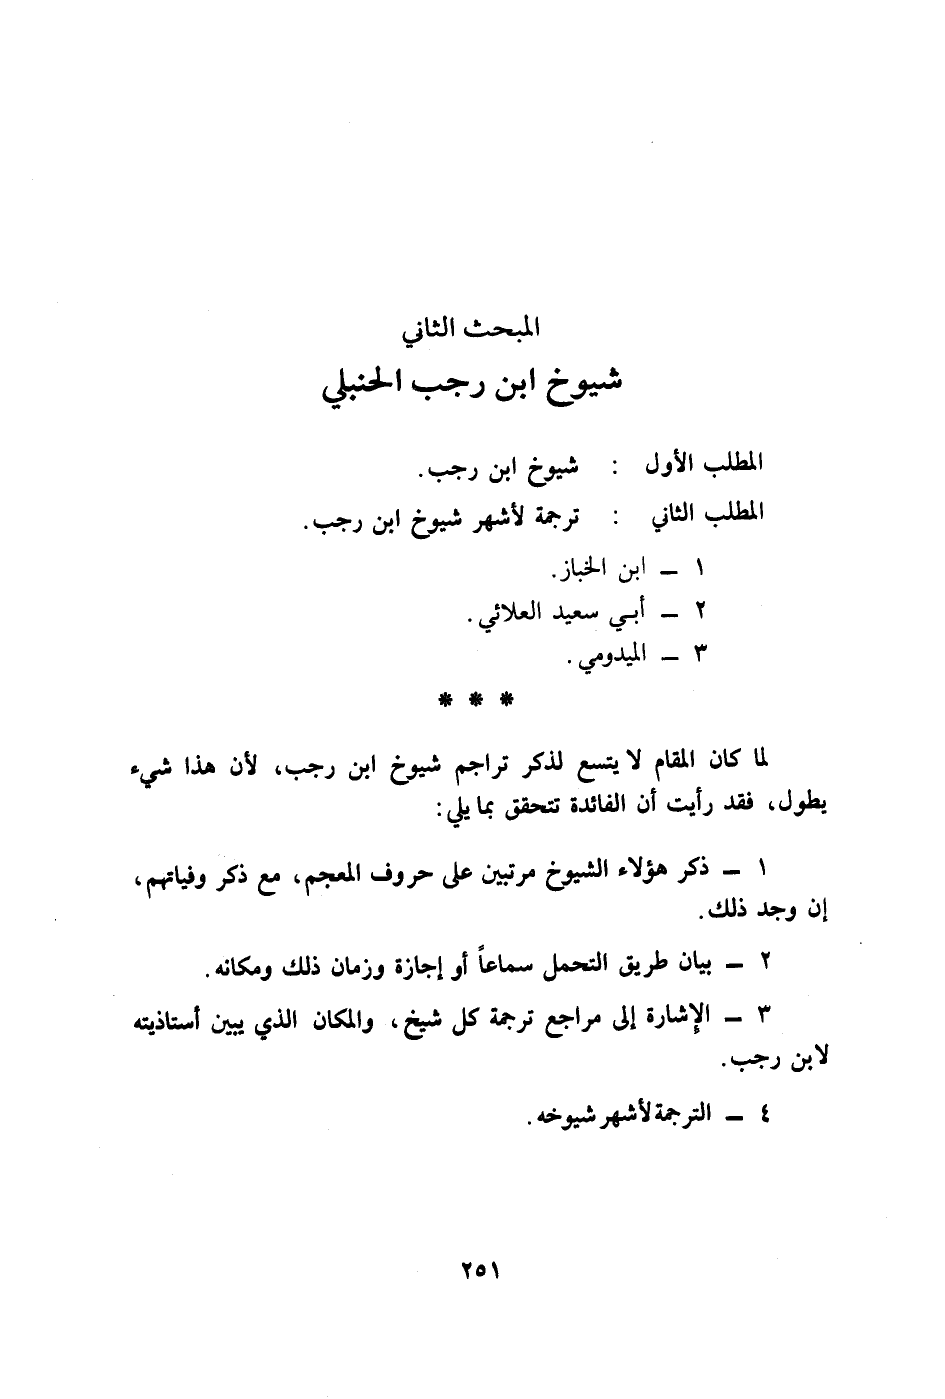 المبحث الثاني
شيوخ ابن رجب الحنبلي
المطلب الأول : شيوخ ابن رجب.
المطلب الثاني : ترجمة لأشهر شيوخ ابن رجب.
١ ــ ابن الخباز.
٢ ــ أبي سعيد العلائي.
٣ ــ الميدومي.
* * *
لما كان المقام لا يتسع لذكر تراجم شيوخ ابن رجب، لأن هذا شيء
يطول، فقد رأيت أن الفائدة تتحقق بما يلي:
١ ــ ذكر هؤلاء الشيوخ مرتبين على حروف المعجم، مع ذكر وفياتهم،
إن وجد ذلك.
٢ ــ بيان طريق التحمل سماعاً أو إجازة وزمان ذلك ومكانه.
٣ ــ الإشارة إلى مراجع ترجمة كل شيخ، والمكان الذي يبين أستاذيته
لابن رجب.
٤ ــ الترجمة لأشهر شيوخه.
٢٥١